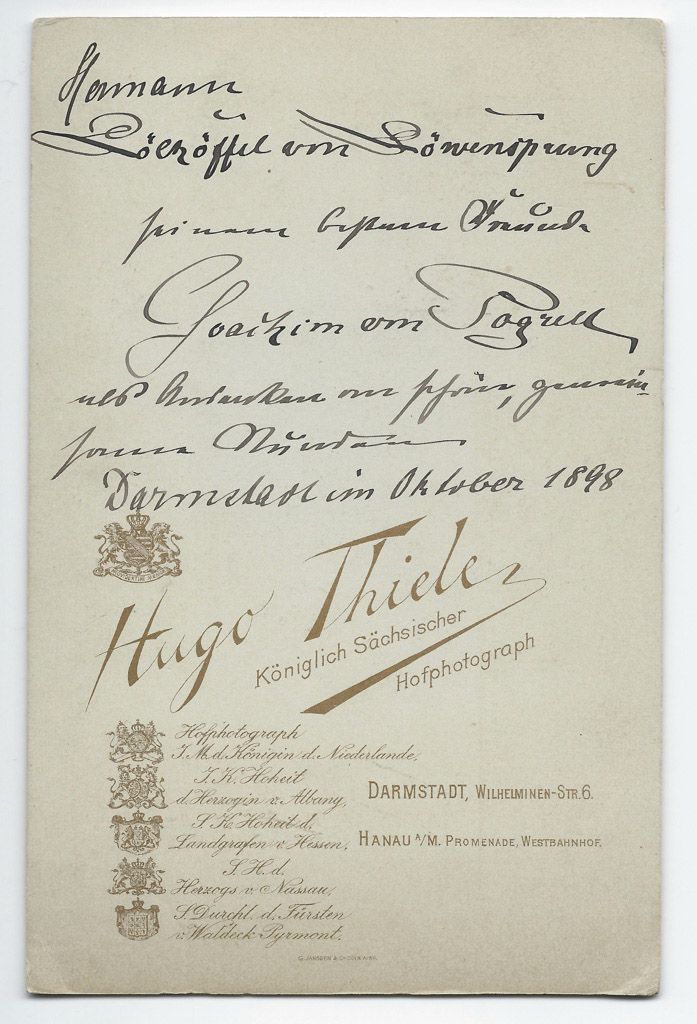 Hermann
Lölhöffel von Löwensprung
seinem besten Freunde
Joachim von
als Andenken an schöne, gemein-
same Stunden
Darmstadt im Oktober 1898
Hugo Thiele
Königlich Sächsischer
Hofphotograph
Hofphotograph
I. M. d. Königin d. Niederlande,
I. K. Hoheit
d. Herzogin v. Albany,
S. K. Hoheit d.
Landgrafen v. Hessen,
S. H. d.
Herzogs v. Nassau,
S. Durchl. d. Fürsten
v. Waldeck Pyrmont.
DARMSTADT, WILHELMINEN-STR. 6.
HANAU A/M. PROMENADE, WESTBAHNHOF.